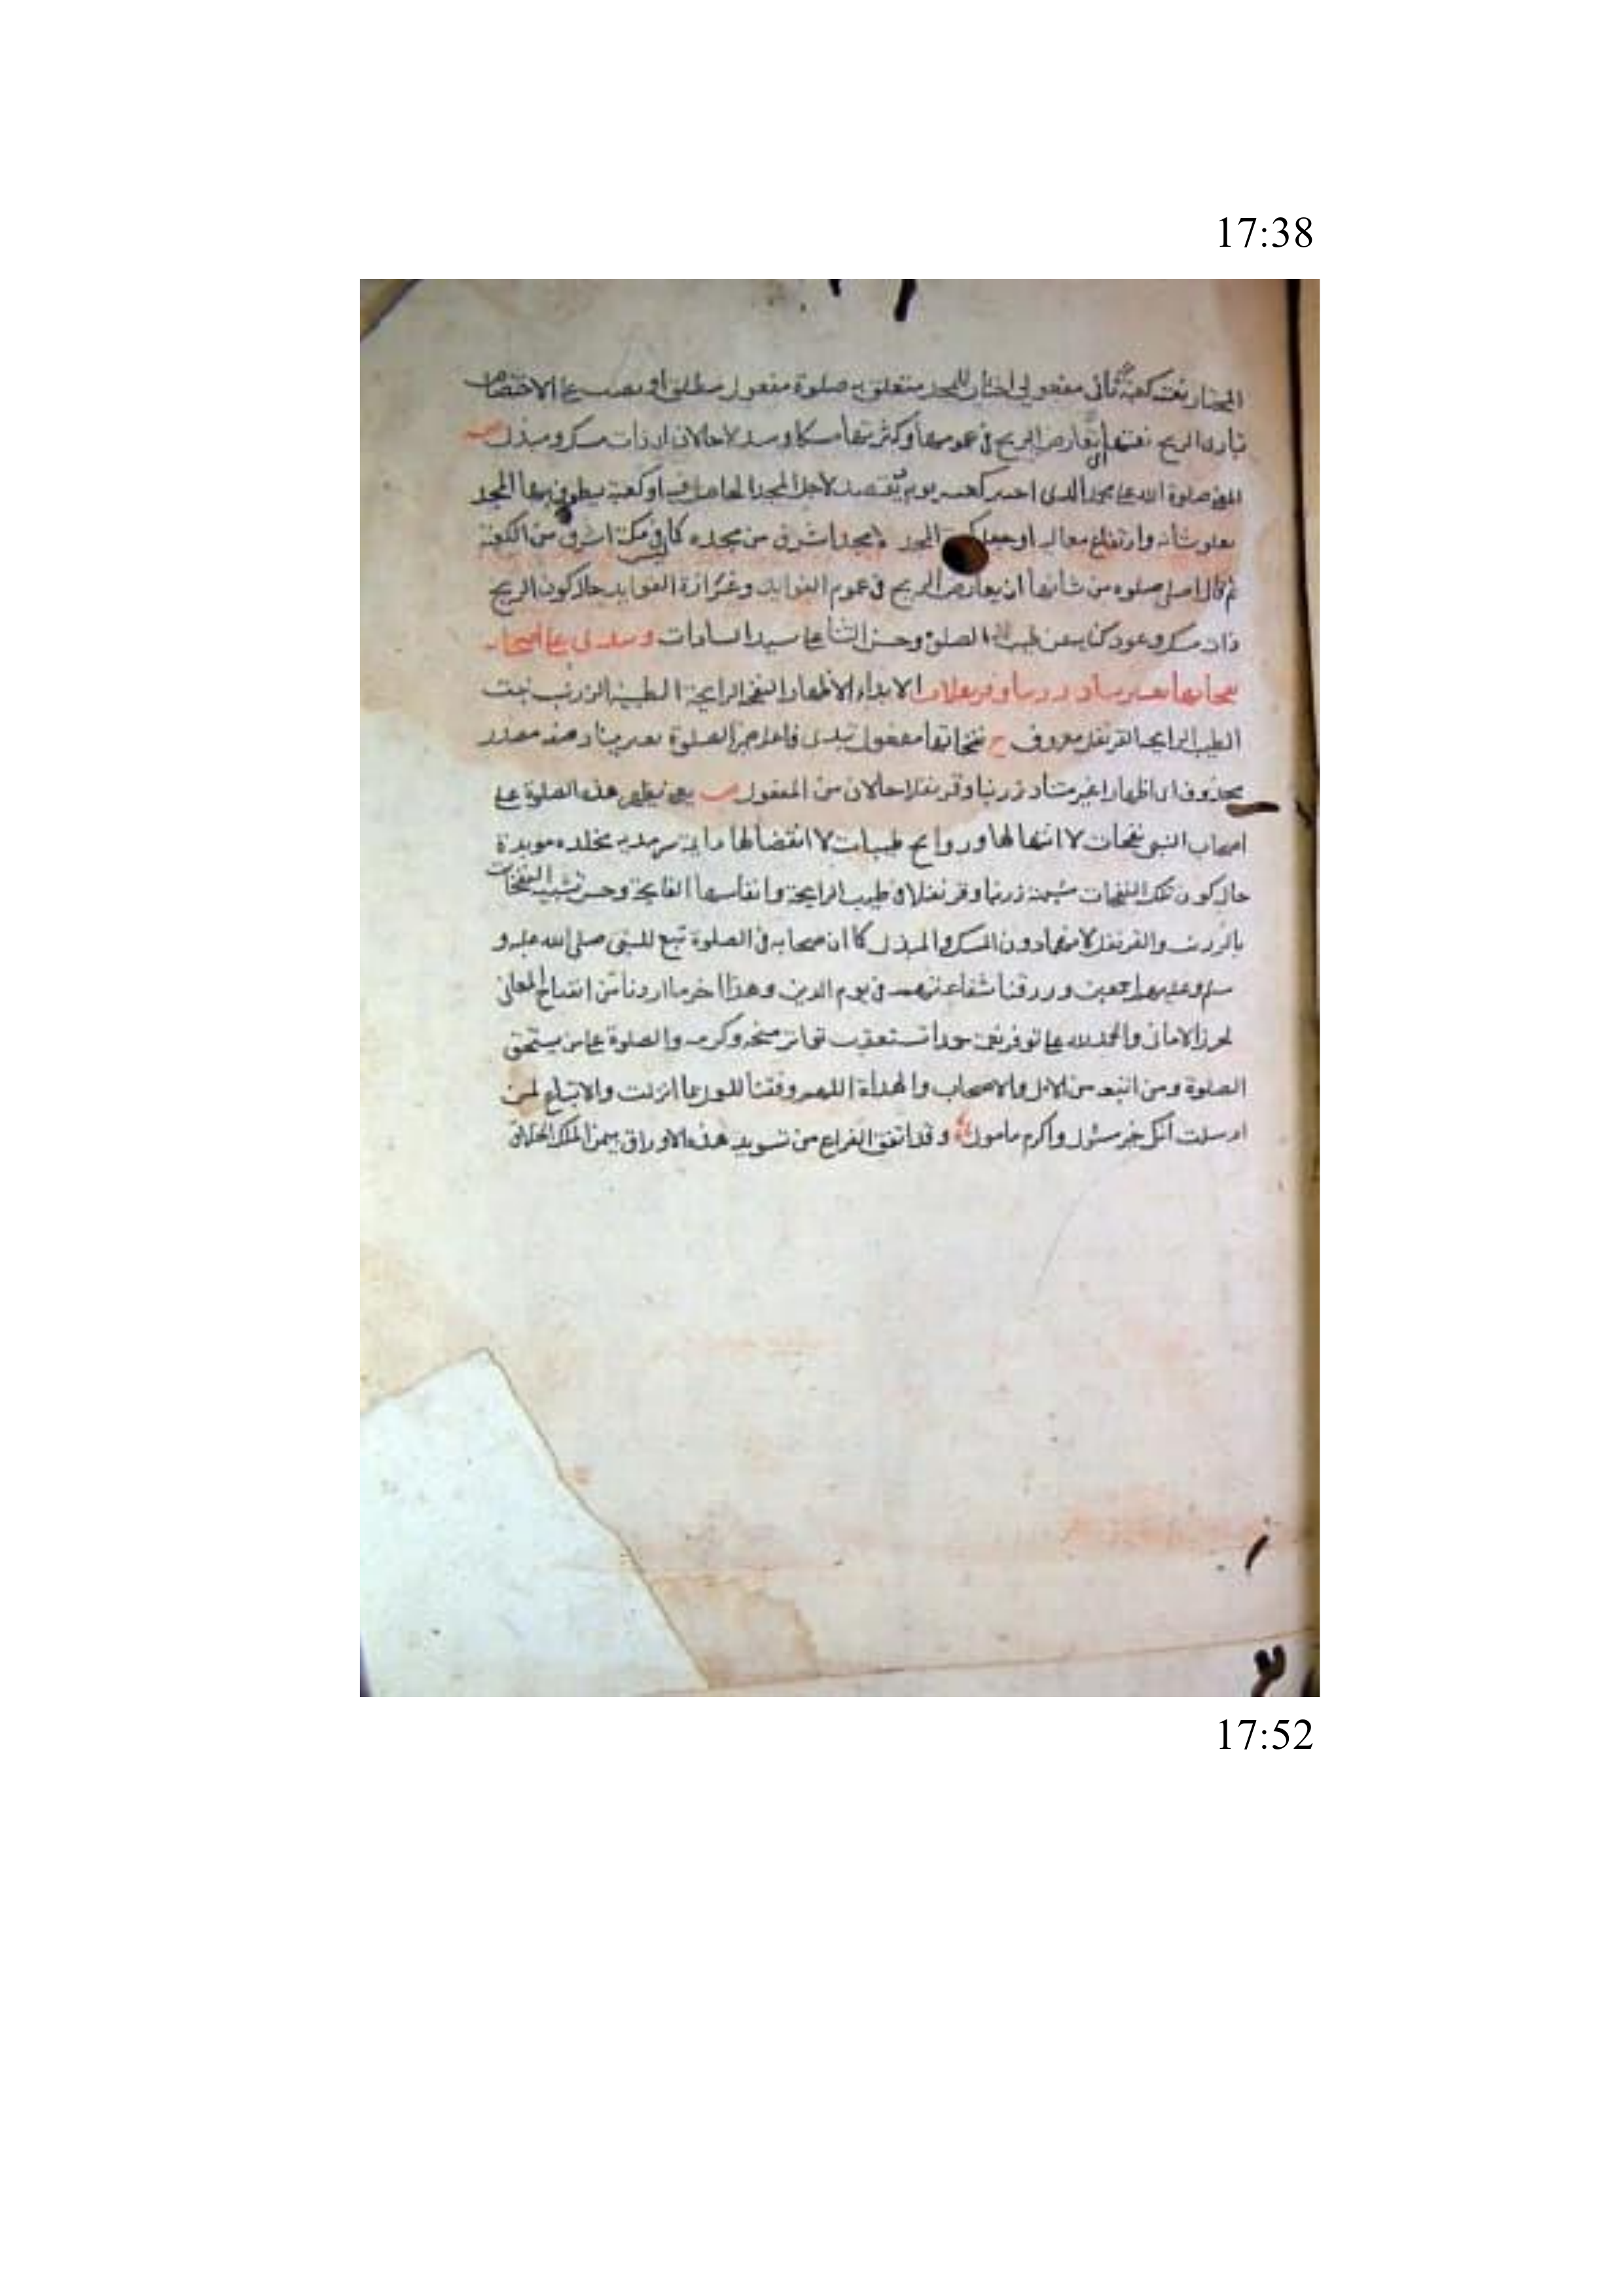 17:38
المختار نعت كعبة ثاني مفعولي اختار للمجد متعلق به صلوة مفعول مطلق او نصب على الاختصاص
تبارى الريح نعتها اى تعارض الريح في عمومها وكثرتها مسكا ومندلا حالان اى ذات مسك ومندل
المعنى صلوة الله على محمد الذى اختير كعبة يوم تقصد لاجل المجد الحاصل فيه او كعبة يطوف بها المجد
بعلو شانه وارتفاع معاليه او جعل المجد لا مجد اشرف من مجده كما ليس في مكة اشرف من الكعبة
ثم قال اصلى صلوه من شأنها ان يعارض الريح في عموم الفوايد وغزازة العوايد حال كون الريح
ذات مسك وعود كناية عن طيب الصلوة وحسن الثنا على سيد السادات وتبدى على اصحابه
نفحاتها بغير تناه زرنبا وقرنفلا الابداء الاظهار النفح الرايحة الطيبة الزرنب نبت
الطيب الرايحة القرنفل معروف ح نفحاتها مفعول تبدى فاعله ضمير الصلوة بغير تناه صفة مصدر
محذوف اى اظهارا غير متناه زرنبا وقرنفلا حالان من المفعول ص يعنى تظهر هذه الصلوة على
اصحاب النبى نفحات لا انتها لها وروايح طيبات لا انقضا لها دايمة سرمدية مخلده موبدة
حال كون تلك النفحات مشبهة زرنبا وقرنفلا في طيب الرايحة وانفاسها الفايحة وحسن تشبيه النفحات
بالزرنب والقرنفل لانهما دون المسك والمندل كما ان صحابه في الصلوة تبع للنبى صلى الله عليه و
سلم وعليهم اجمعين ورزقنا شفاعتهم في يوم الدين وهذا اخر ما اردنا من افتتاح المعانى
لحرز الامانى والحمد لله على توفر نعمه حمدا تستعقب تواتر منحه وكرمه والصلوة على من يستحق
الصلوة ومن اتبعه من الال والاصحاب والهداة اللهم وفقنا للورع بما انزلت والاتباع لمن
ارسلت انك خير مسئول واكرم مامول وقد اتفق الفراغ من تسويد هذه الاوراق بيمن الملك الخلاق
17:52